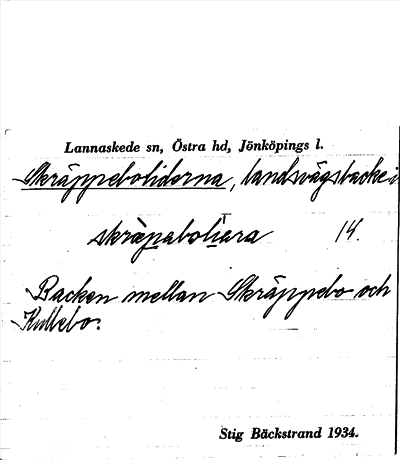 Lannaskede sn, Östra hd, Jönköpings l.
Skräppeboliderna, landsvägsbacke i
skräpaboliara 14.
Backen mellan Skräppebo och
Kullebo.
Stig Bäckstrand 1934.